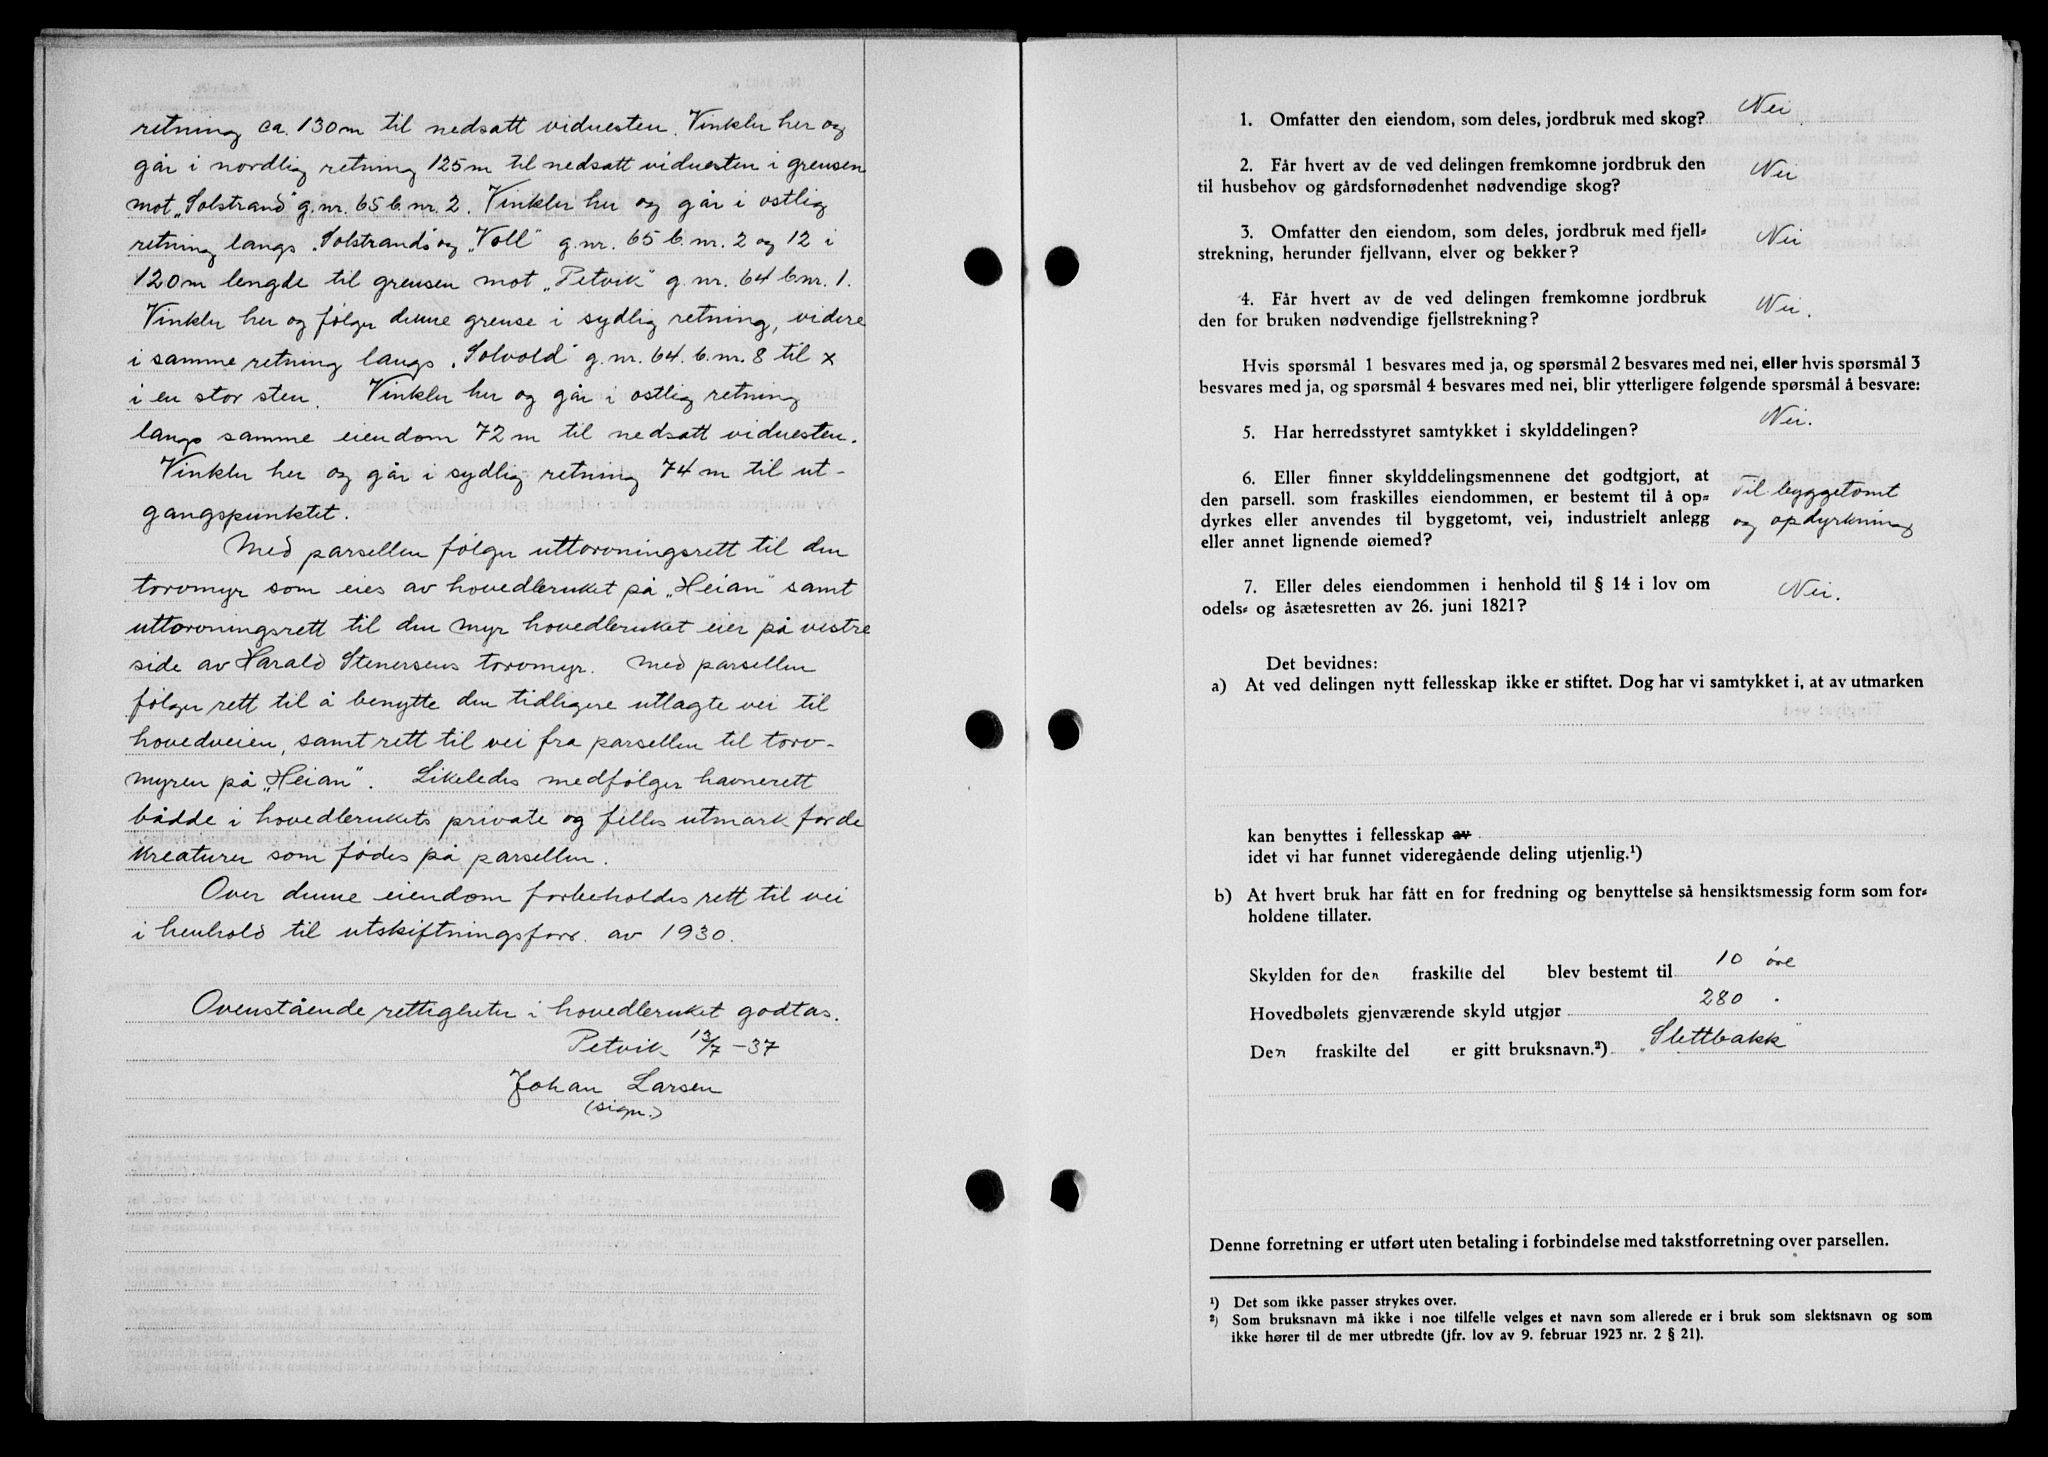 retning ca. 130m til nedsatt vidnesten. Vinkler her og
går i nordlig retning 125m til nedsatt vidnesten i grensen
mot „Solstrand" g.nr. 65 b.nr. 2. Vinkler her og går i ostlig
retning langs „Solstrand" og „Voll" g.nr. 65 b.nr. 2 og 12 i
120m lengde til grensen mot „Petvik" g.nr. 64 b.nr. 1.
Vinkler her og følger denne grense i sydlig retning, videre
i samme retning langs „Solvold" g.nr. 64. b.nr. 8 til x
i en stor sten. Vinkler her og går i ostlig retning
langs samme eiendom 72m til nedsatt vidnesten.
Vinkler her og går i sydlig retning 74m til ut-
gangspunktet.
Med parsellen følger uttorvningsrett til den
torvmyr som eies av hovedbruket på „Heian" samt
uttorvningsrett til den myr hovedbruket eier på vestre
side av Harald Stenersens torvmyr. Med parsellen
følger rett til å benytte den tidligere utlagte vei til
hovedveien, samt rett til vei fra parsellen til torv-
myren på „Heian". Likeledes medfølger havnerett
bådde i hovedbrukets private og felles utmark for de
kreaturer som fødes på parsellen.
Over denne eiendom forbeholdes rett til vei
i henhold til utskiftningsforr. av 1930.
Ovenstående rettigheter i hovedbruket godtas.
Petvik 13/7-37
Johan Larsen
(sign.)
1. Omfatter den eiendom, som deles, jordbruk med skog? Nei
2. Får hvert av de ved delingen fremkomne jordbruk den
til husbehov og gårdsfornødenhet nødvendige skog? Nei
3. Omfatter den eiendom, som deles, jordbruk med fjell-
strekning, herunder fjellvann, elver og bekker? Nei
4. Får hvert av de ved delingen fremkomne jordbruk
den for bruken nødvendige fjellstrekning? Nei.
Hvis spørsmål 1 besvares med ja, og spørsmål 2 besvares med nei, eller hvis spørsmål 3
besvares med ja, og spørsmål 4 besvares med nei, blir ytterligere følgende spørsmål å besvare:
5. Har herredsstyret samtykket i skylddelingen? Nei.
6. Eller finner skylddelingsmennene det godtgjort, at
den parsell. som fraskilles eiendommen, er bestemt til å op- Til byggetomt
dyrkes eller anvendes til byggetomt, vei, industrielt anlegg og opdyrkning
eller annet lignende øiemed?
7. Eller deles eiendommen i henhold til § 14 i lov om
odels- og åsætesretten av 26. juni 1821? Nei.
Det bevidnes:
a) At ved delingen nytt fellesskap ikke er stiftet. Dog har vi samtykket i, at av utmarken
kan benyttes i fellesskap av
idet vi har funnet videregående deling utjenlig.¹)
b) At hvert bruk har fått en for fredning og benyttelse så hensiktsmessig form som for-
holdene tillater.
Skylden for den fraskilte del blev bestemt til 10 øre
Hovedbølets gjenværende skyld utgjør 280 .
Den fraskilte del er gitt bruksnavn.²) „Slettbakk"
Denne forretning er utført uten betaling i forbindelse med takstforretning over parsellen.
¹) Det som ikke passer strykes over.
²) Som bruksnavn må ikke i noe tilfelle velges et navn som allerede er i bruk som slektsnavn og som
ikke hører til de mer utbredte (jfr. lov av 9. februar 1923 nr. 2 § 21).